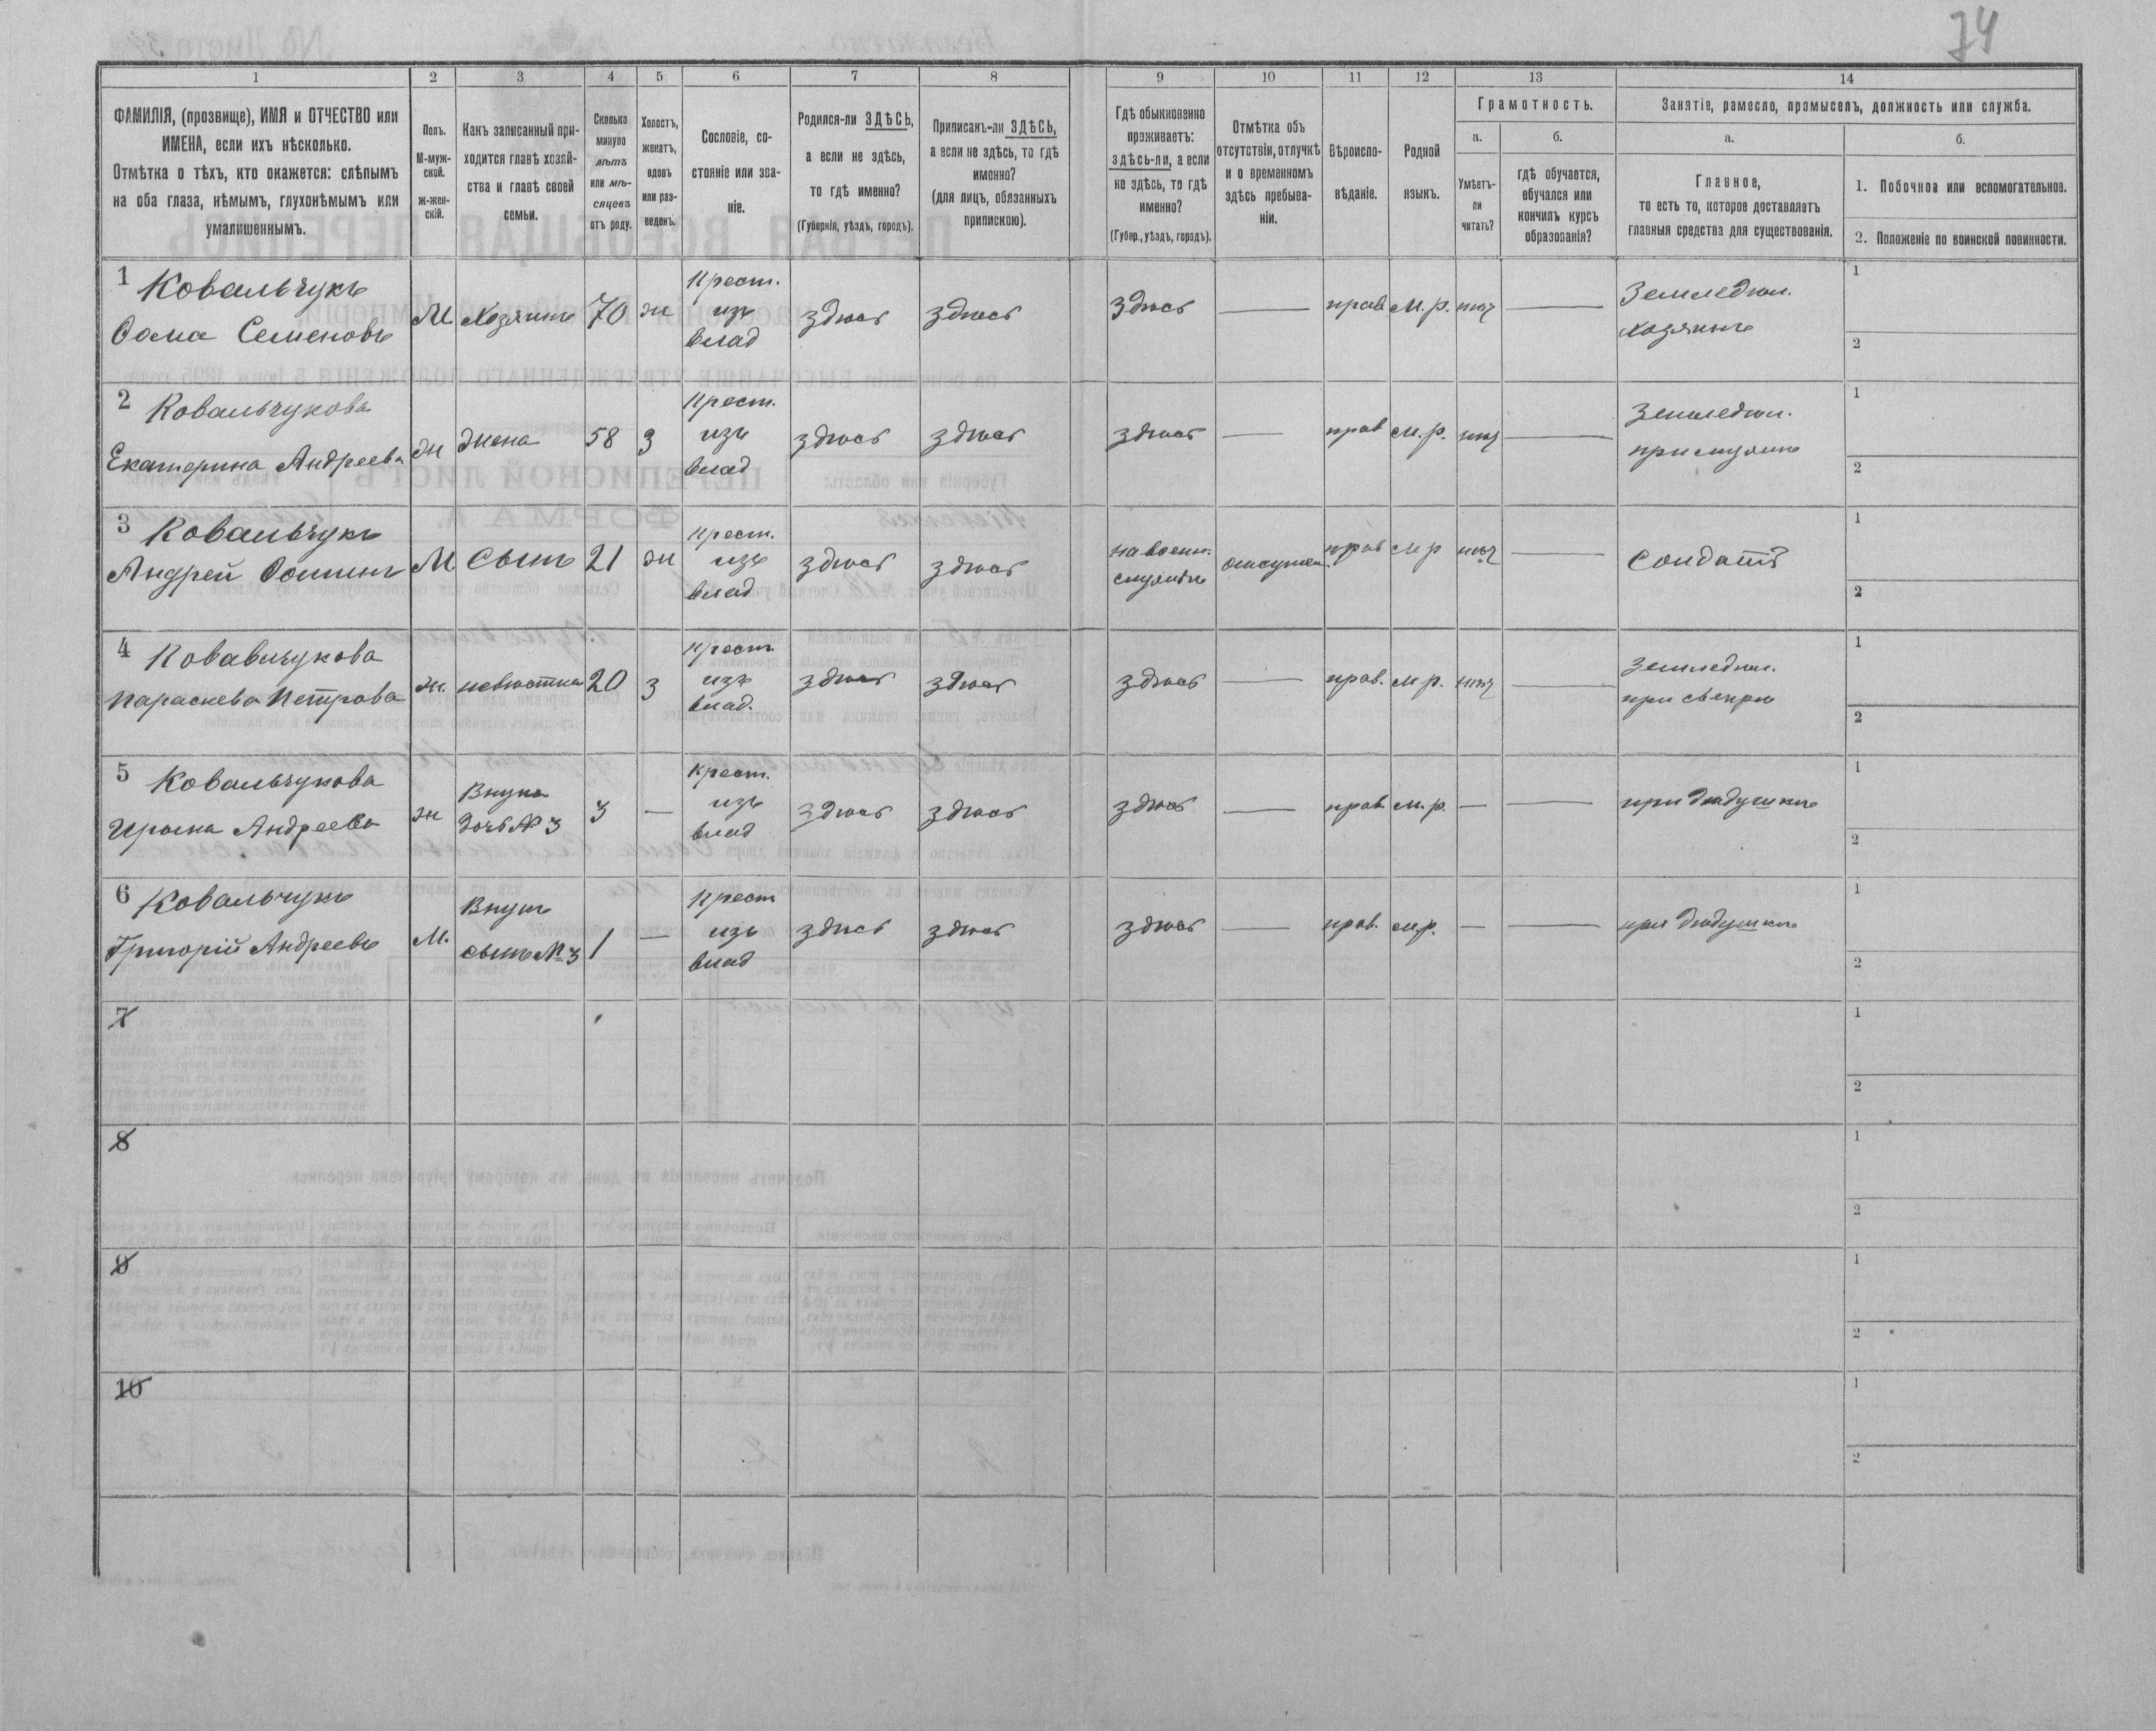 74
1 2 3 4 5 6 7 8 9 10 11 12 13 14
ФАМИЛІЯ, (прозвище), ИМЯ и ОТЧЕСТВО или
ИМЕНА, если ихъ нѣсколько.
Отмѣтка о тѣхъ, кто окажется: слѣпымъ
на оба глаза, нѣмымъ, глухонѣмымъ или
умалишеннымъ.
Полъ.
М-муж-
ской.
Ж-жен-
скій.
Какъ записанный при-
ходится главѣ хозяй-
ства и главѣ своей
семьи.
Сколько
минуло
лѣтъ
или мѣ-
сяцевъ
отъ роду.
Холостъ,
женатъ,
вдовъ
или раз-
веденъ.
Сословіе, со-
стояніе или зва-
ніе.
Родился-ли ЗДѢСЬ,
а если не здѣсь,
то гдѣ именно?
(Губернія, уѣздъ, городъ).
Приписанъ-ли ЗДѢСЬ,
а если не здѣсь, то гдѣ
именно?
(для лицъ, обязанныхъ
припискою).
Гдѣ обыкновенно
проживаетъ:
здѣсь-ли, а если
не здѣсь, то гдѣ
именно?
(Губер., уѣздъ, городъ).
Отмѣтка объ
отсутствіи, отлучкѣ
и о временномъ
здѣсь пребыва-
ніи.
Вѣроиспо-
вѣданіе.
Родной
языкъ.
Грамотность.
а.
Умѣетъ-
ли
читать?
б.
гдѣ обучается,
обучался или
кончилъ курсъ
образованія?
Занятіе, ремесло, промыселъ, должность или служба.
а.
Главное,
то есть то, которое доставляетъ
главныя средства для существованія.
б.
1. Побочное или вспомогательное.
2. Положеніе по воинской повинности.
1 Ковальчукъ
Оома Семеновъ
М Хозяинъ 70 ж
Крест.
изъ
влад
здѣсь здѣсь здѣсь — прав М.р. нѣт —
Земледѣл.
хозяинъ
1
2
2 Ковальчукова
Екатерина Андреева
ж жена 58 з
Крест.
изъ
влад
здѣсь здѣсь здѣсь — прав м.р. нѣт —
Земледѣл.
при мужѣ
1
2
3 Ковальчукъ
Андрей Оминъ
М Сынъ 21 ж
Крест.
изъ
влад
здѣсь здѣсь
на воен.
службѣ
прав м р нѣт —
Солдатъ
1
2
4 Ковальчукова
Параскева Петрова
ж. невѣстка 20 з
Крест.
изъ
влад.
здѣсь здѣсь здѣсь — прав. м р. нѣт —
Земледѣл.
при свекрѣ
1
2
5 Ковальчукова
Ирина Андреева
ж
Внука
дочь № 3
3 —
Крест.
изъ
влад
здѣсь здѣсь здѣсь — прав м.р. — —
при дѣдушкѣ
1
2
6 Ковальчукъ
Григорій Андреевъ
М.
Внукъ
сынъ № 3
1 —
Крест
изъ
влад
здѣсь здѣсь здѣсь — прав. м.р. — —
при дѣдушкѣ
1
2
7
1
2
8
1
2
9
1
2
10
1
2